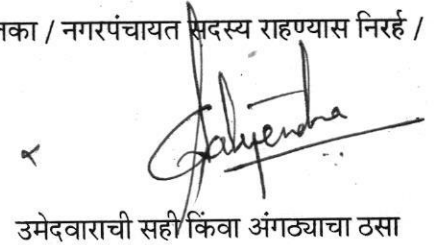 नका / नगरपंचायत सदस्य राहण्यास निरर्ह /
Satyendra
उमेदवाराची सही किंवा अंगठ्याचा ठसा